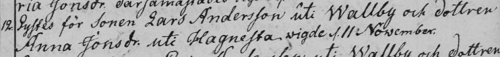 12. Lystes för Sonen Lars Andersson uti Wallby och dottren
Anna Jonsdr. uti Hagnesta wigde d. 11 November.
uti Wallby och dottren